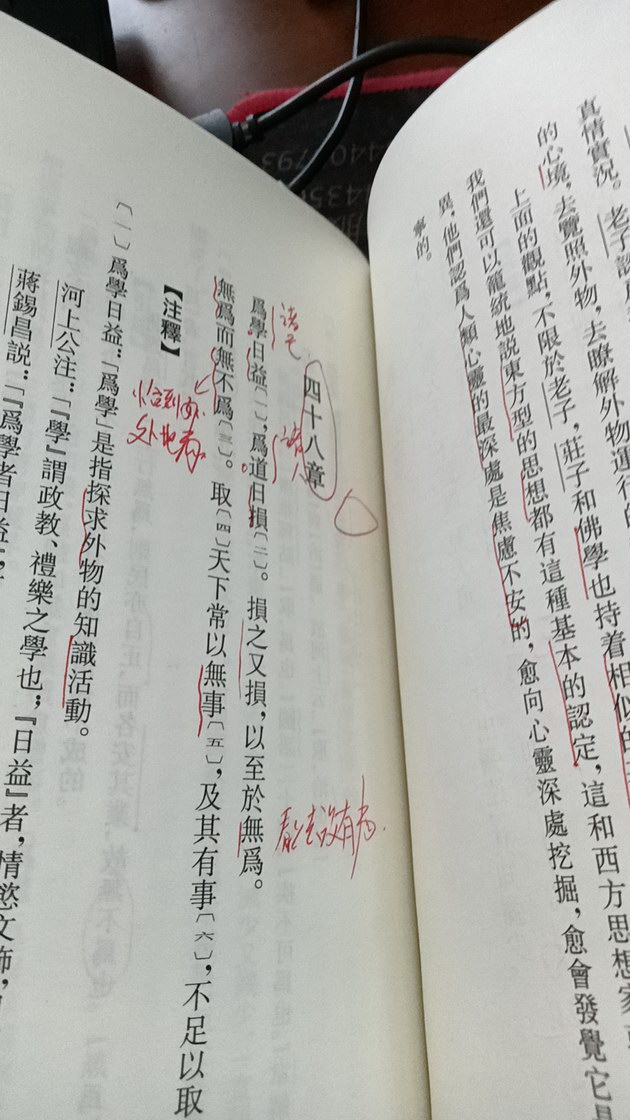 真情實況。老子認
的心境，去覽照外物，去瞭解外物運行的
上面的觀點，不限於老子，莊子和佛學也持着相似的
我們還可以籠統地說東方型的思想都有這種基本的認定，這和西方思想家
異，他們認爲人類心靈的最深處是焦慮不安的，愈向心靈深處挖掘，愈會發覺它是
寧的。
四十八章
爲學日益〔一〕，爲道日損〔二〕。損之又損，以至於無爲。
無爲而無不爲〔三〕。取〔四〕天下常以無事〔五〕，及其有事〔六〕，不足以取
【注釋】
〔一〕爲學日益：「爲學」是指探求外物的知識活動。
河上公注：「『學』謂政教、禮樂之學也；『日益』者，情慾文飾，日
蔣錫昌說：「『爲學者日益』，